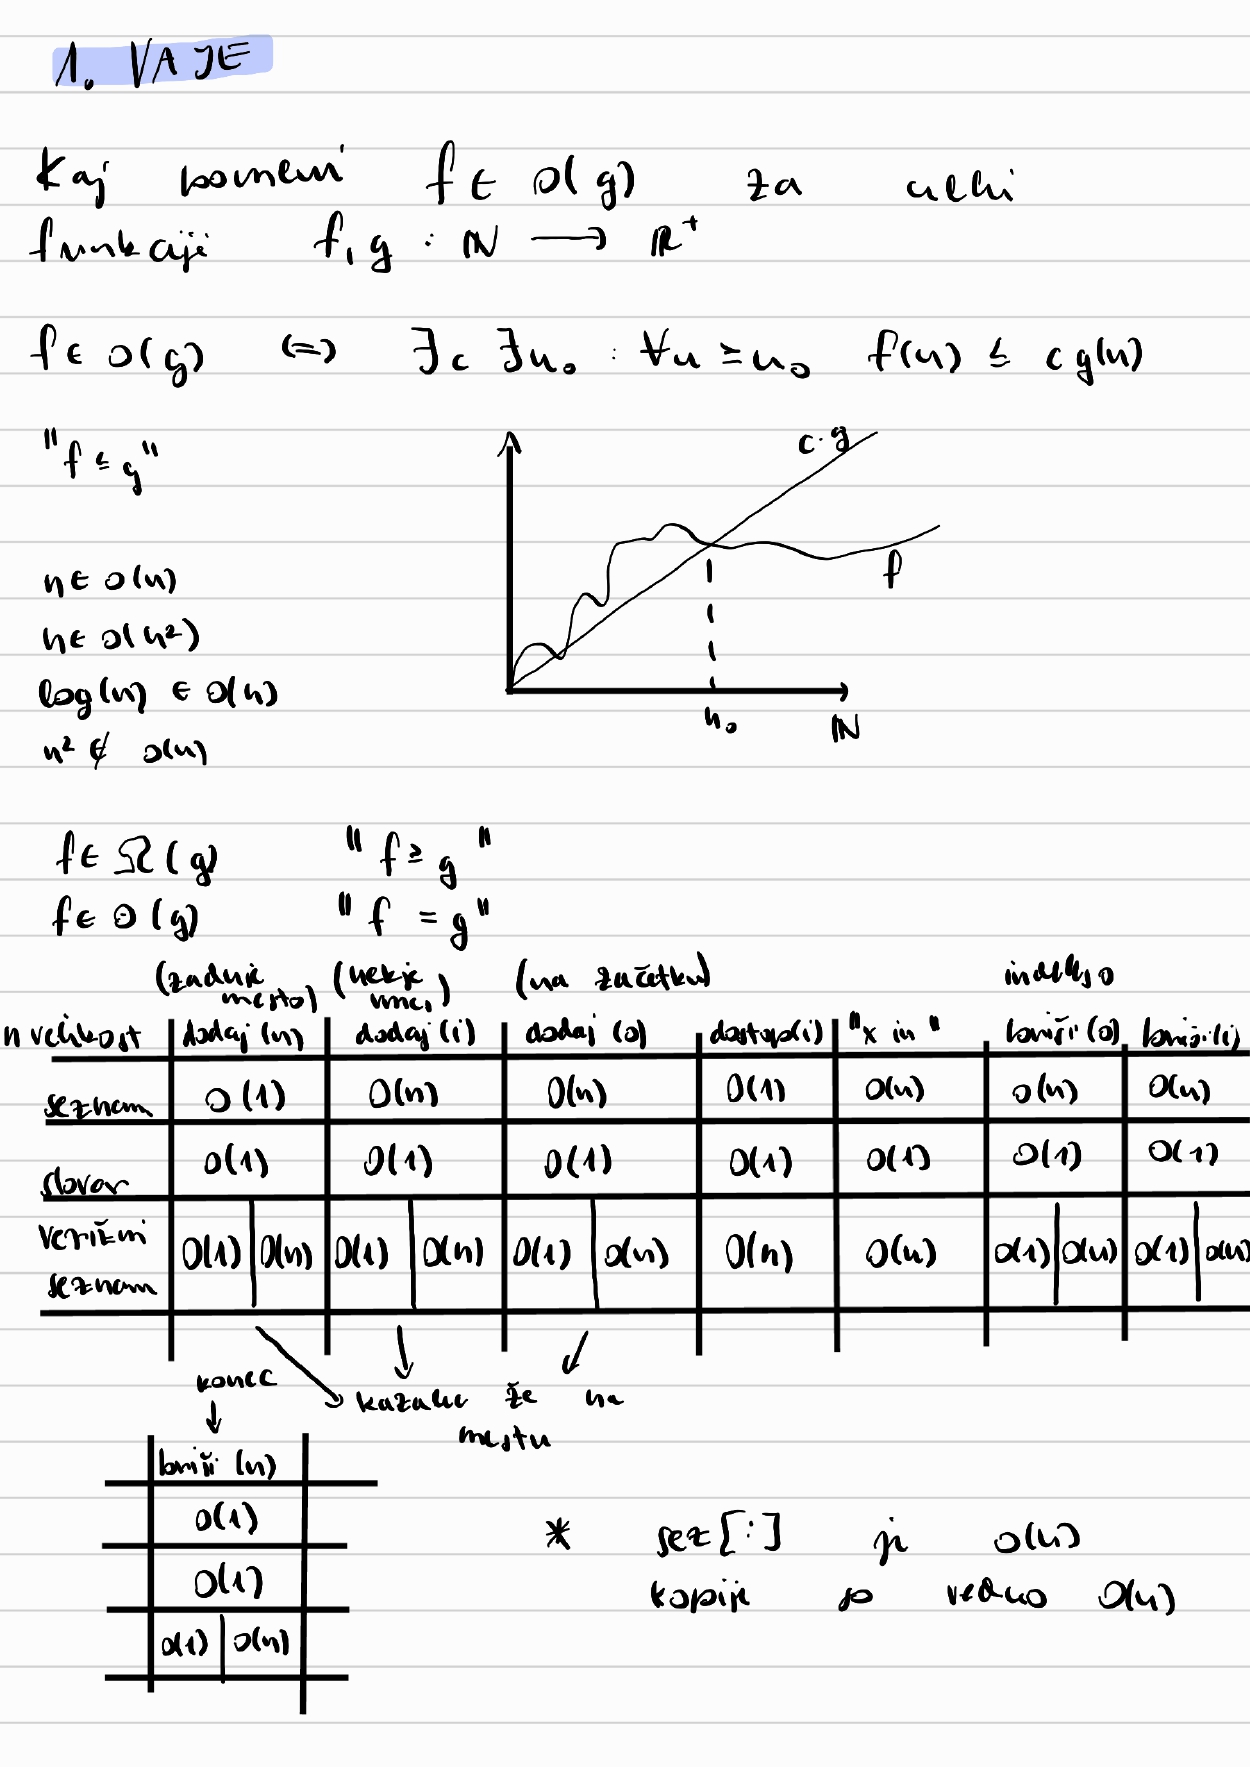 1. VAJE
Kaj pomeni f ∈ O(g) za neki
funkciji f, g : ℕ → ℝ⁺
f ∈ O(g) (=) ∃c ∃n₀ : ∀n ≥ n₀ f(n) ≤ c g(n)
"f ≤ g"
c·g
f
n₀ ℕ
n ∈ O(n)
n ∈ O(n²)
log(n) ∈ O(n)
n² ∉ O(n)
f ∈ Ω(g) "f ≥ g"
f ∈ Θ(g) "f = g"
(zadnje mesto) (nekje vmes) (na začetku) indeks 0
n velikost dodaj (n) dodaj (i) dodaj (0) dostop(i) "x in" briši (0) briši (i)
seznam O(1) O(n) O(n) O(1) O(n) O(n) O(n)
slovar O(1) O(1) O(1) O(1) O(1) O(1) O(1)
verižni seznam O(1) O(n) O(1) O(n) O(1) O(n) O(n) O(n) O(1) O(n) O(1) O(n)
konec kazalec že na
mestu
briši (n)
O(1)
O(1)
O(1) O(n)
* sez[:] je O(n)
kopije so vedno O(n)